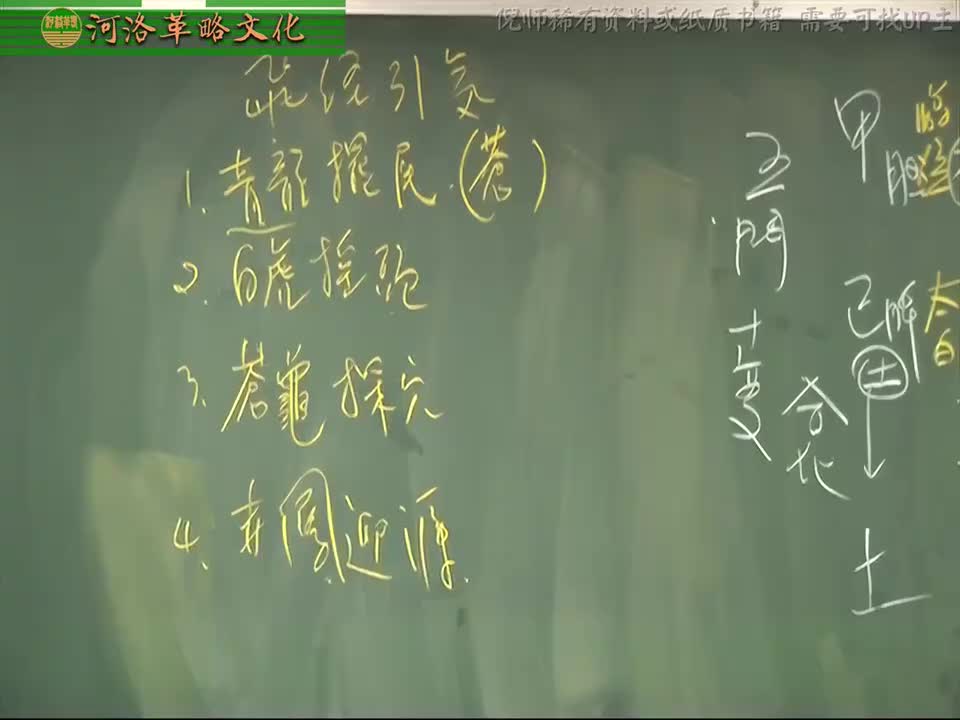 河洛革略文化
倪师稀有资料或纸质书籍 需要可找up主
飛经引気
1. 青龍擺尾(蒼)
2. 白虎摇頭
3. 蒼龜探穴
4. 赤鳳迎源
五門十變
合化
甲胆
己脾
太白
土
土